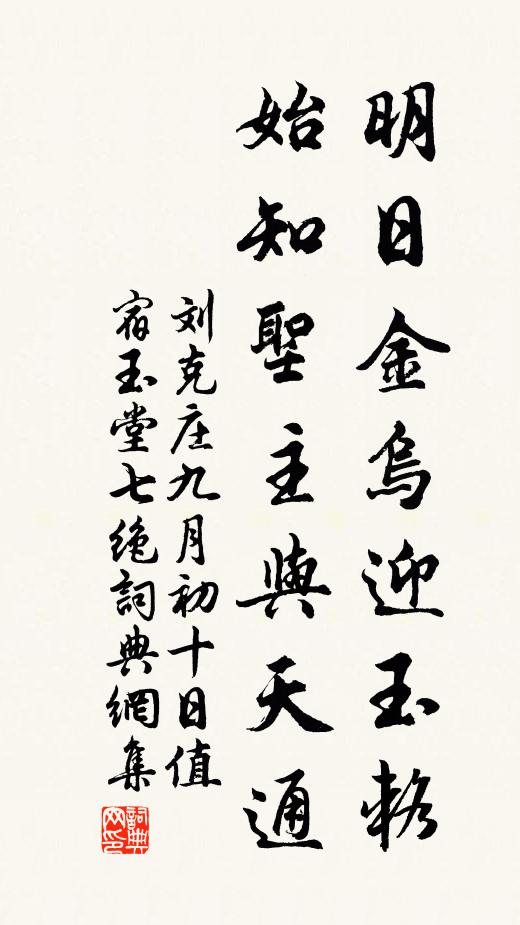 明日金烏迎玉輅
始知聖主與天通
刘克庄九月初十日值
宿玉堂七绝詞典網集
詞典
网印